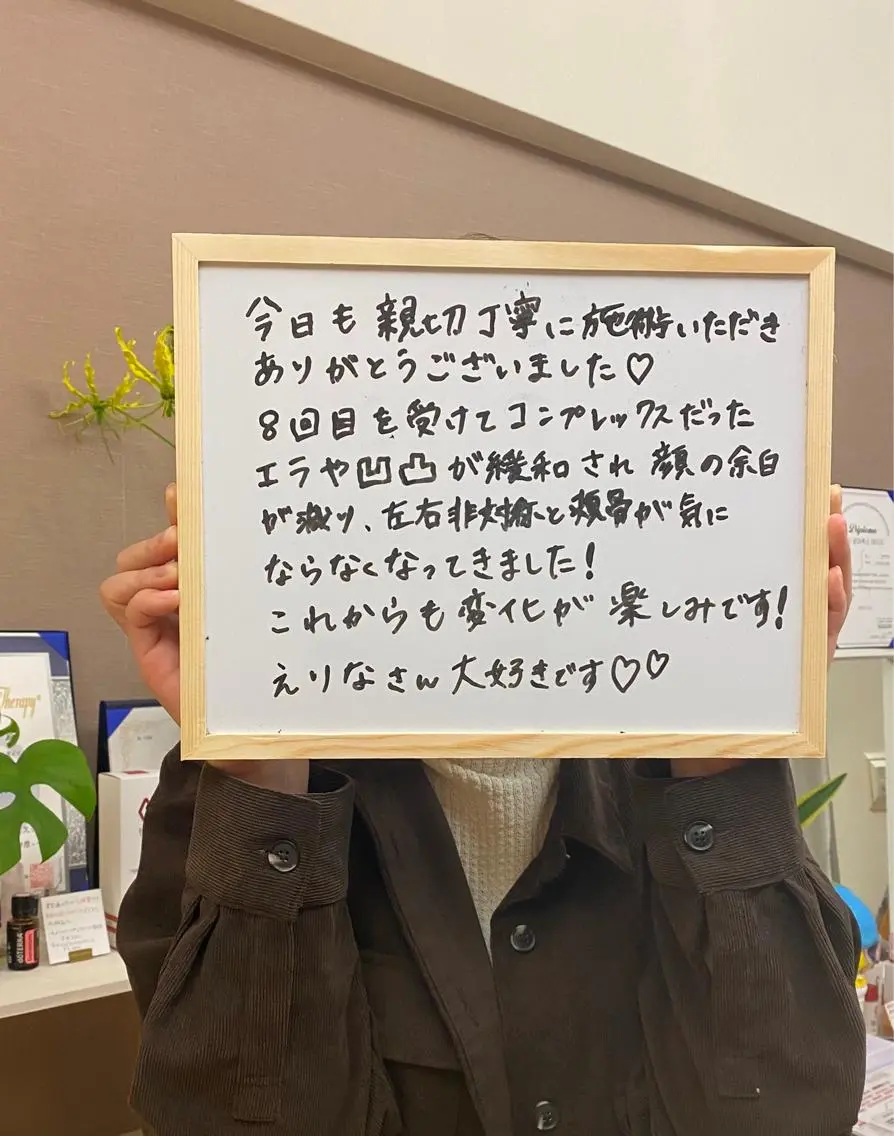 今日も親切丁寧に施術いただき
ありがとうございました♡
8回目を受けてコンプレックスだった
エラや凹凸が緩和され顔の余白
が減り、左右非対称と頬骨が気に
ならなくなってきました!
これからも変化が楽しみです!
えりなさん大好きです♡♡
Diploma
Therapy
doTERRA